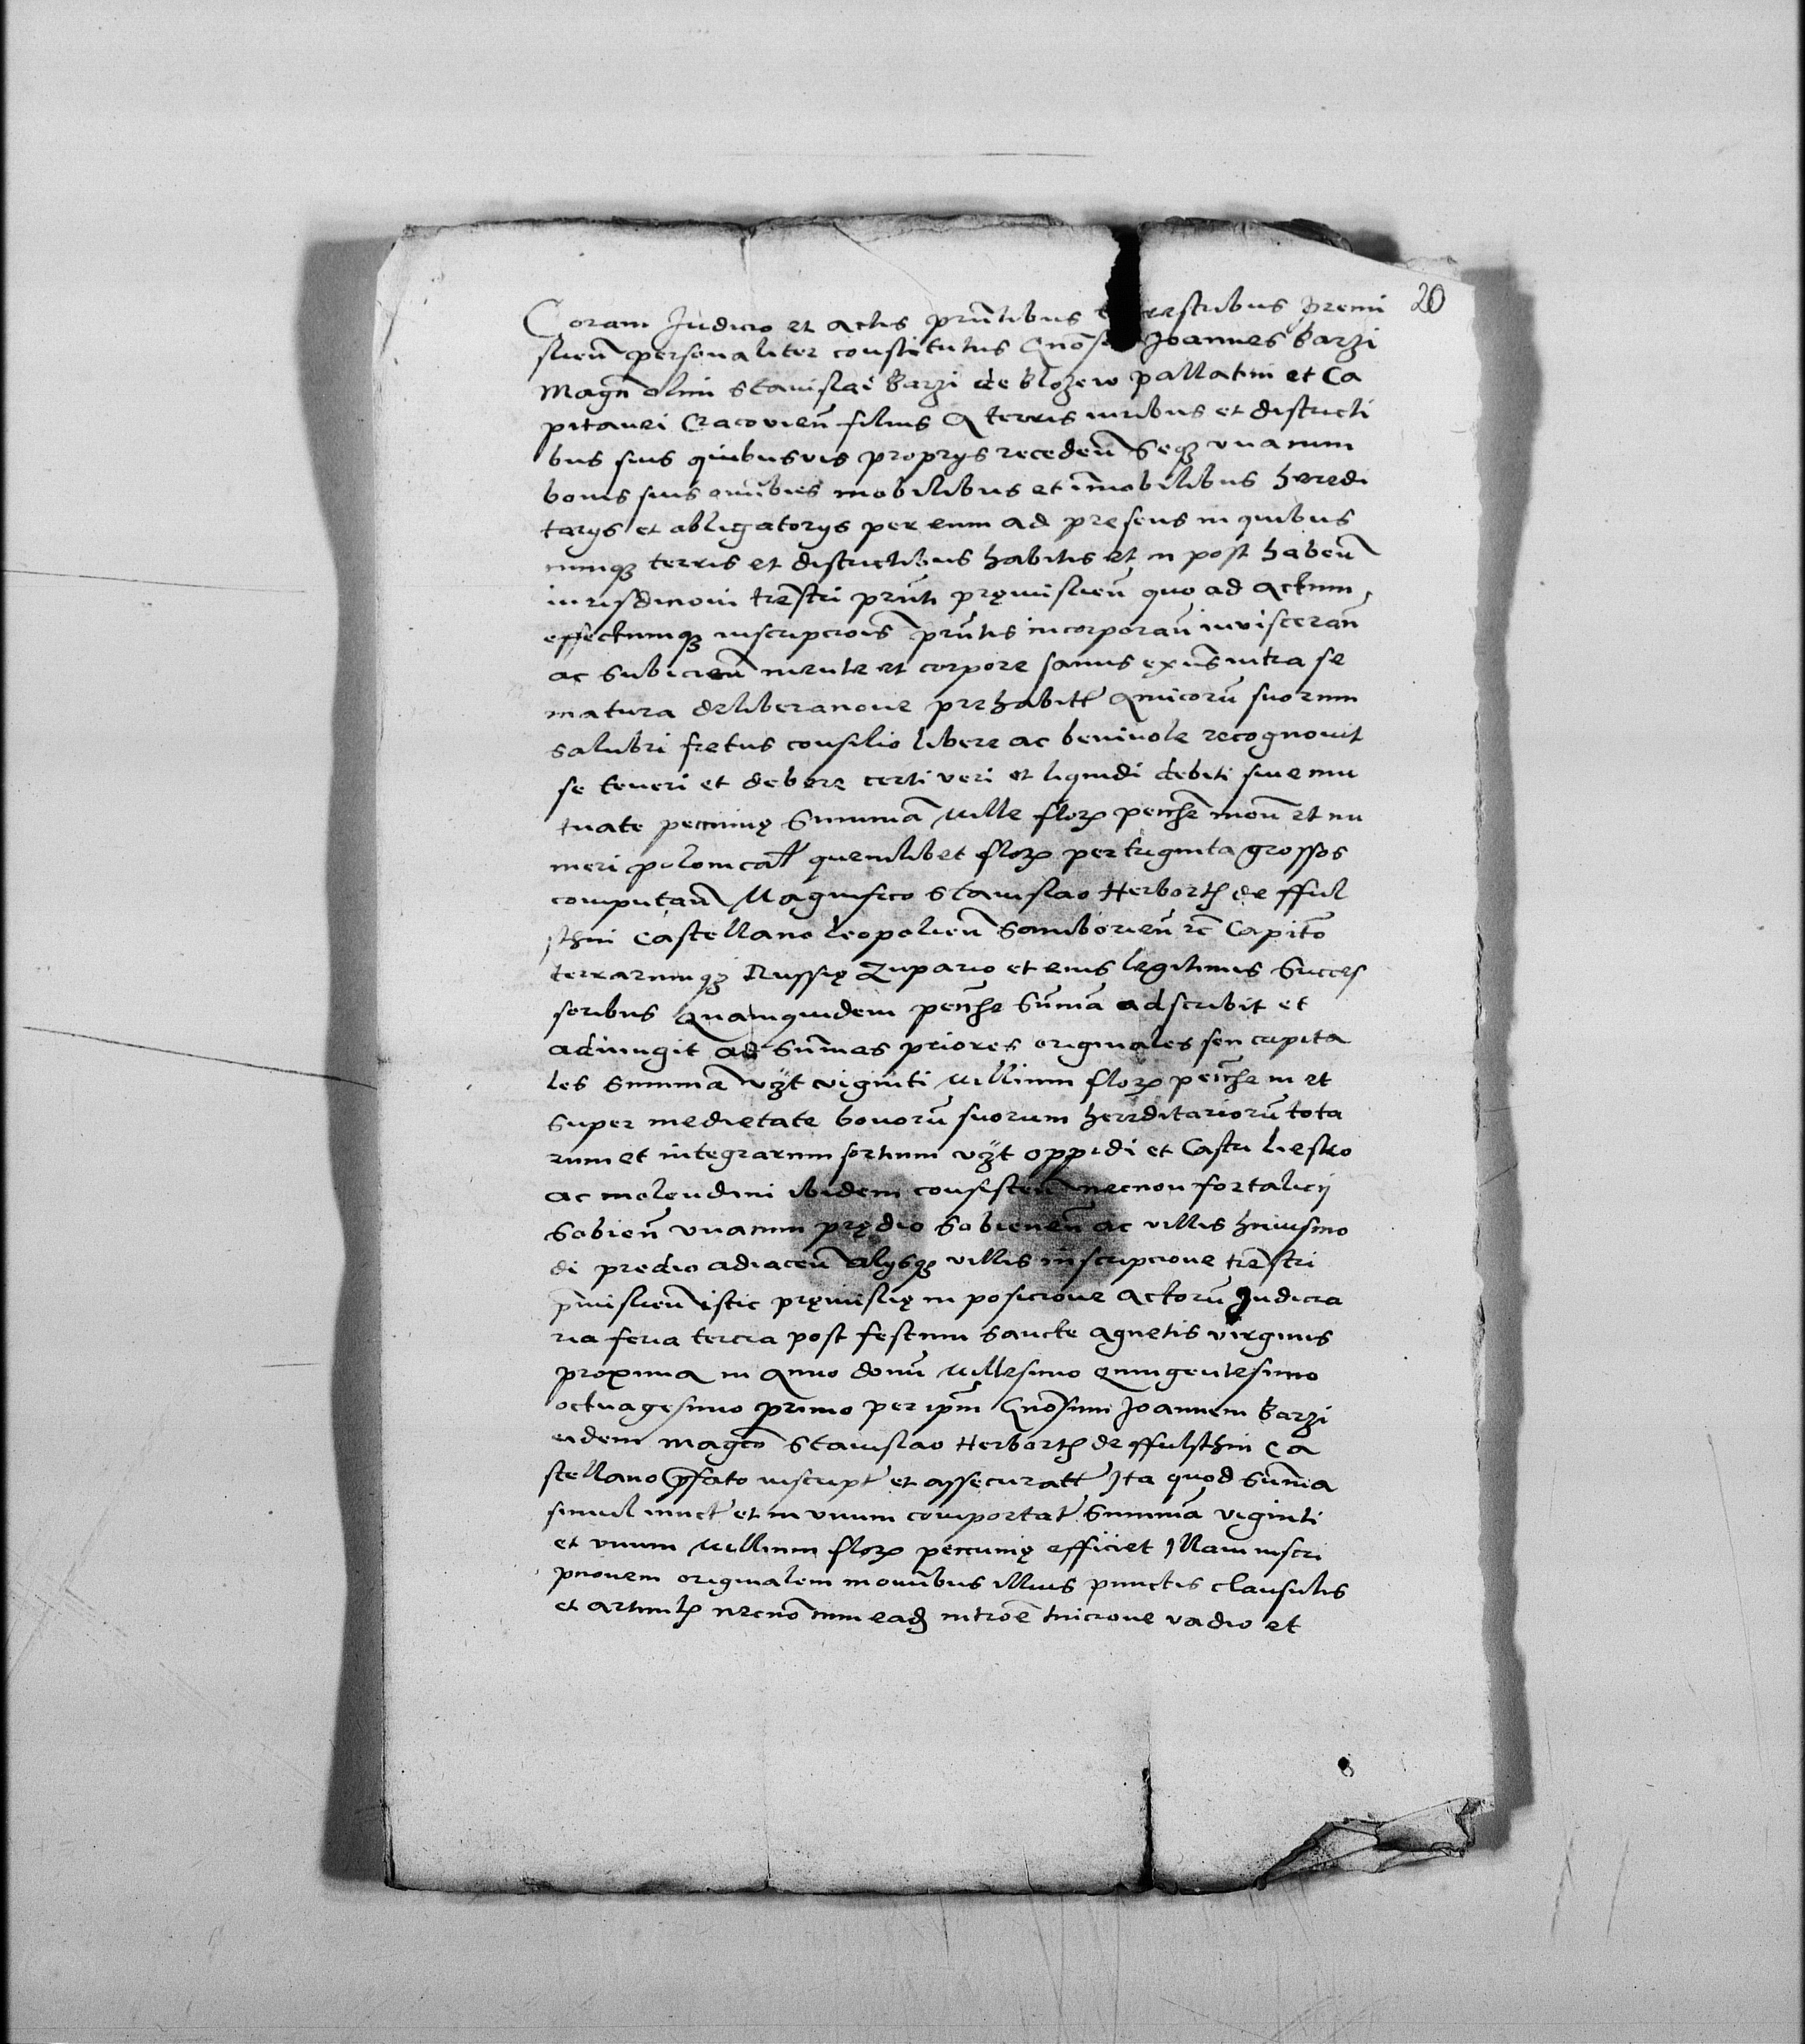 20
Coram Judicio et actis pr̃ntibus t restribus premi
slieñ personaliter constitutus Gnõs Joannes Barzi
Magñ olim Stanislai Barzi de Blozew pallatini et Ca
pitanei Cracovieñ filius A terris iuribus et districti
bus suis quibusvis proprys recedeñ Seqȝ vna cum
bonis suis omĩbus mobilibus et ĩmobilibus heredi
tarys et obligatorys per eum ad presens in quibus
cumqȝ terris et districtibus habitis et in post habeñ
iurisdicioni tr̃estri pr̃nti pręmislieñ quo ad actum,
effectumqȝ inscripciõis pr̃ntis incorporañ invisceran̄
ac Subicieñ mente et corpore sanus exñs intra se
matura deliberacione prehabitt̃ Amicorũ suorum
salubri fretus consilio libere ac benivole recognovit
se teneri et debere certi veri et liquidi debiti siue mu
tuate pecunię Summã Mille florꝫ pecc̃he moñ et nu
meri polonicał quemlibet florꝫ per triginta grossos
computañ Magnifico Stanislao Herborth de fful
sthin Castellano leopolieñ Samborieñ ꝛc̃ Capitõ
terrarumqȝ Russię Zupario et eius legitimis Succes
soribus Quamquidem pecc̃he Sũmã adscribit et
adiungit ad Sũmas priores originales seu capita
les Summã vȝt viginti Millium florꝫ pecc̃he in et
super medietate bonorũ suorum hereditariorũ tota
rum et integrarum sortium vȝt oppidi et Castri liesko
ac molendini ibidem consisteñ necnon fortalicij
Sobieñ vna cum prędio Sobieneñ ac villis huiusmo
di predio adiaceñ alysqȝ villis inscripcione tr̃estri
p̃mislieñ istic pręmislię in posicione actorũ Judicia
ria feria tercia post festum Sancte agnetis virginis
proxima in Anno domĩ Millesimo Quingentesimo
octuagesimo primo per ipm̃ Gnõsum Joannem Barzi
eidem magc̃o Stanislao Herborth de ffulsthin Ca
stellano p̃fato inscript̃ et assecuratt̃ Ita quod Sũma
simul iunct̃ et in vnum comportat̃ Summã viginti
et vnum Millium florꝫ pecunię efficiet Illam inscri
pcionem originalem in omĩbus illius punctis clausulis
et articulꝫ necnõ cum eadȝ intrõe tuicione vadio et